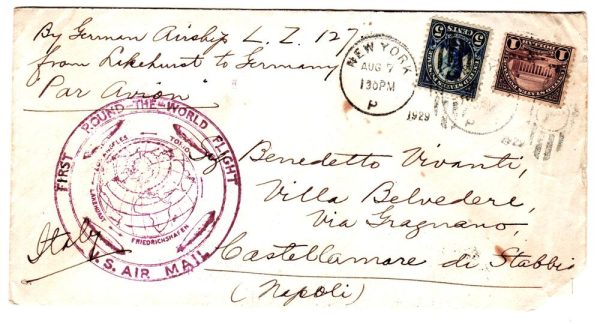 By German Airship L. Z. 127
from Lakehurst to Germany
"Par Avion"
NEW YORK
AUG 7
1 30 PM
P
1929
5 CENTS 5
1 1
FIRST ROUND-THE-WORLD FLIGHT
U.S. AIR MAIL
LOS ANGELES
TOKIO
LAKEHURST
FRIEDRICHSHAFEN
Sig Benedetto Vivanti,
Villa Belvedere,
Via Gragnano,
Castellamare di Stabbia
(Napoli)
Italy